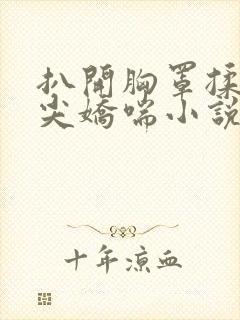 扒開胸罩揉
尖嬌喘小說
十年涼血